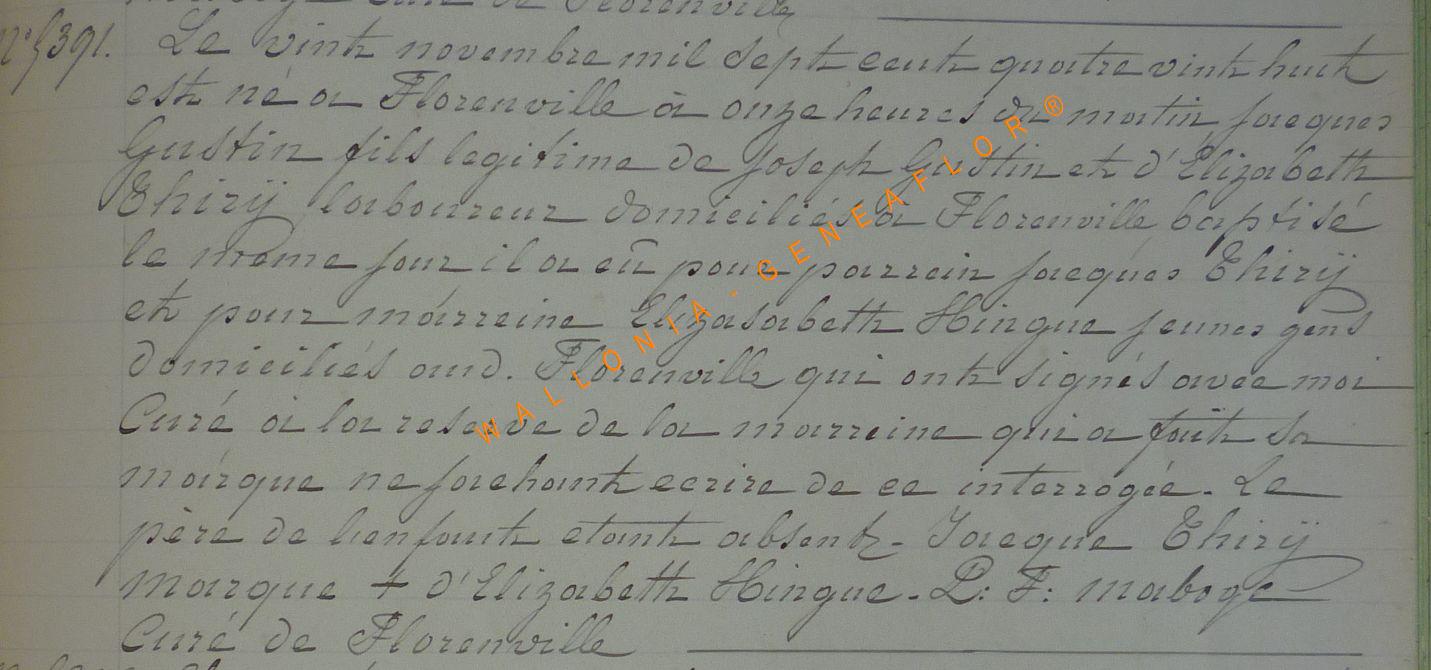 Curé de Florenville
N° 5391. Le vint novembre mil sept cent quatre vint huit
est né a Florenville à onze heures du matin jacques
Gustin fils legitime de joseph Gustin et d'Elizabeth
Thirÿ laboureur domiciliés a Florenville baptisé
le même jour il a eû pour parrain jacques Thirÿ
et pour marreine Elizasabeth Hingue jeunes gens
domiciliés aud. Florenville qui ont signés avec moi
Curé à la reserve de la marreine qui a fait sa
marque ne sachant ecrire de ce interrogée. Le
père de lenfant etant absent. Jacque Thirÿ
marque + d'Elizabeth Hingue. P: F: maboge
Curé de Florenville
WALLONIA-GENEAFLOR®